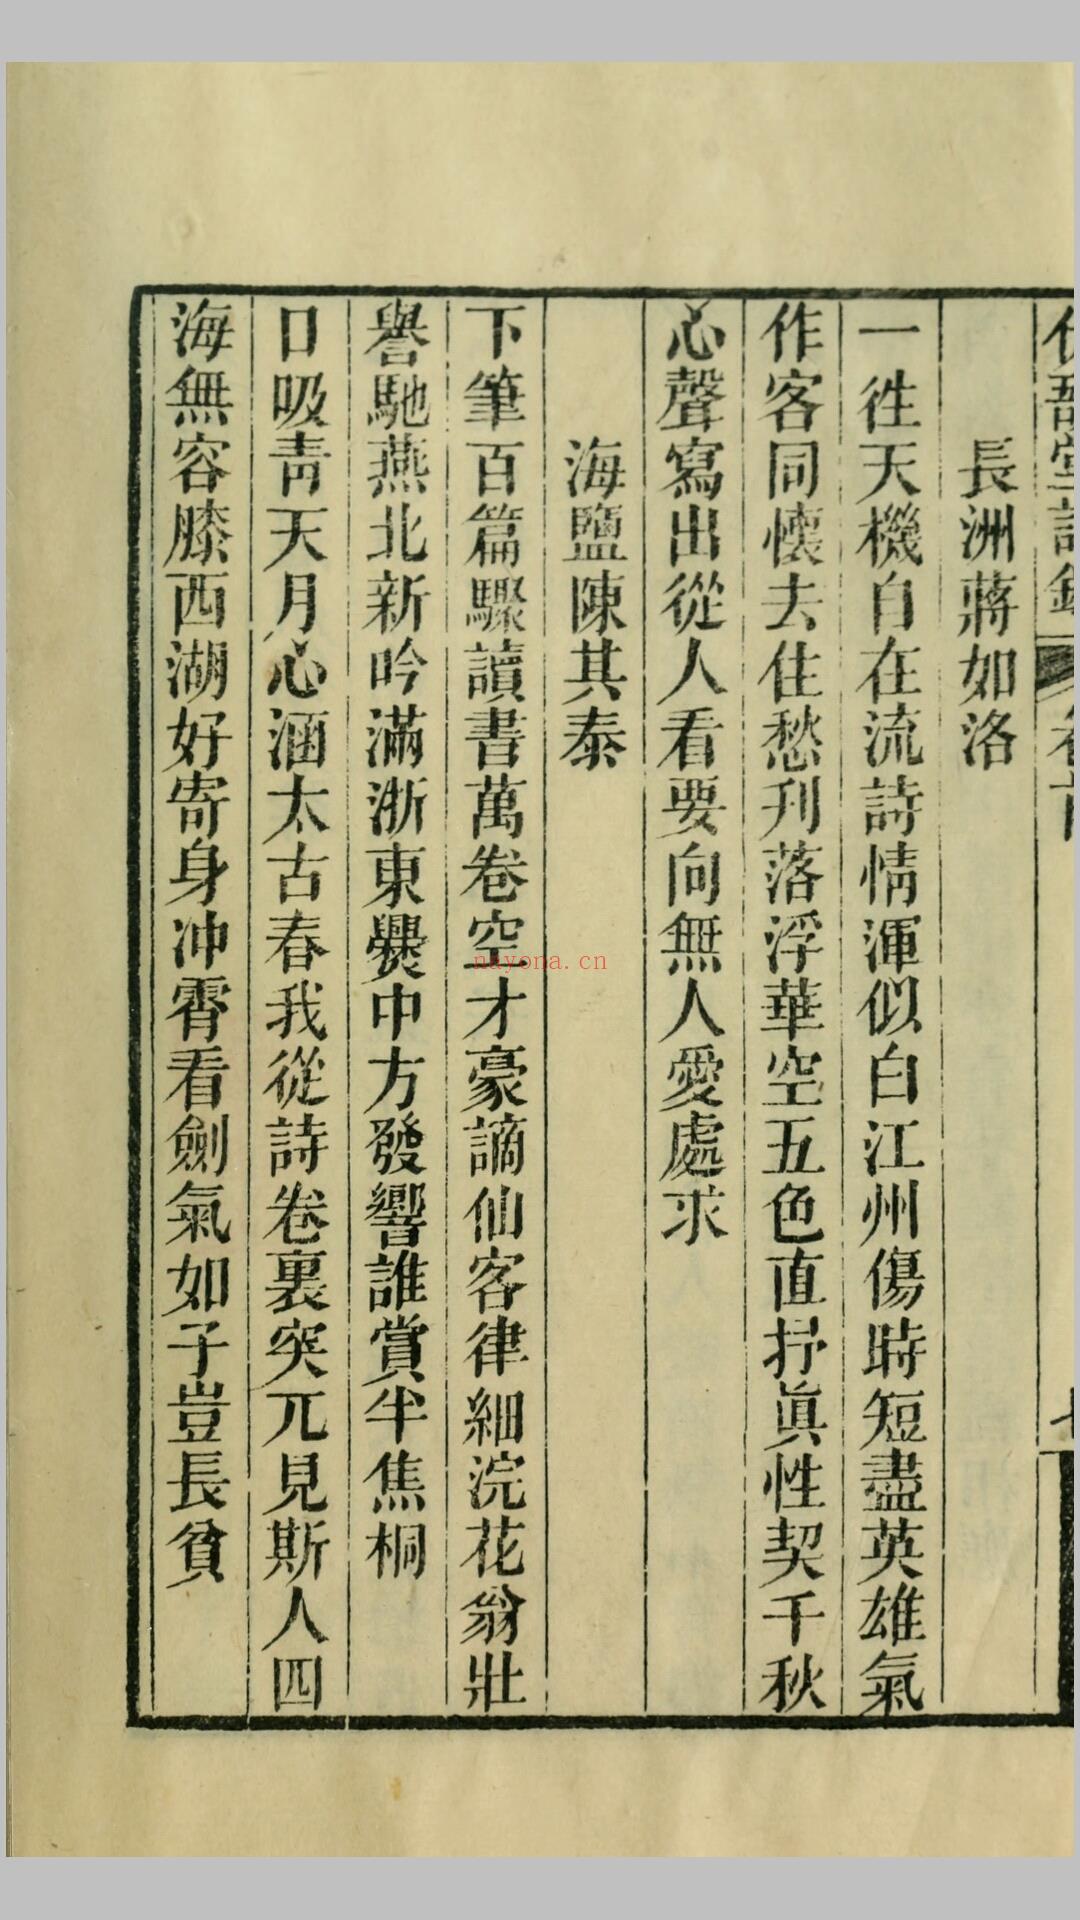 長洲蔣如洛
一徃天機自在流詩情渾似白江州傷時短盡英雄氣
作客同懷去住愁刋落浮華空五色直抒眞性契千秋
心聲寫出從人看要向無人愛處求
海鹽陳其泰
下筆百篇驟讀書萬卷空才豪謫仙客律細浣花翁壯
譽馳燕北新吟滿浙東爨中方發響誰賞半焦桐
口吸靑天月心涵太古春我從詩卷裏突兀見斯人四
海無容膝西湖好寄身冲霄看劍氣如子豈長貧
nayona.cn